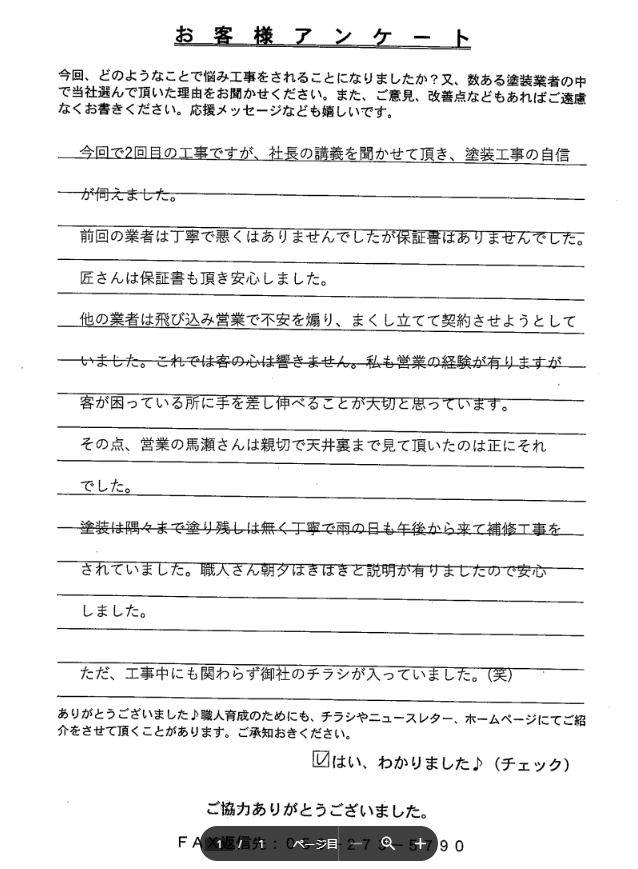 お客様アンケート
今回、どのようなことで悩み工事をされることになりましたか？又、数ある塗装業者の中
で当社選んで頂いた理由をお聞かせください。また、ご意見、改善点などもあればご遠慮
なくお書きください。応援メッセージなども嬉しいです。
今回で2回目の工事ですが、社長の講義を聞かせて頂き、塗装工事の自信
が伺えました。
前回の業者は丁寧で悪くはありませんでしたが保証書はありませんでした。
匠さんは保証書も頂き安心しました。
他の業者は飛び込み営業で不安を煽り、まくし立てて契約させようとして
いました。これでは客の心は響きません。私も営業の経験が有りますが
客が困っている所に手を差し伸べることが大切と思っています。
その点、営業の馬瀬さんは親切で天井裏まで見て頂いたのは正にそれ
でした。
塗装は隅々まで塗り残しは無く丁寧で雨の日も午後から来て補修工事を
されていました。職人さん朝夕はきはきと説明が有りましたので安心
しました。
ただ、工事中にも関わらず御社のチラシが入っていました。（笑）
ありがとうございました♪職人育成のためにも、チラシやニュースレター、ホームページにてご紹
介をさせて頂くことがあります。ご承知おきください。
はい、わかりました♪（チェック）
ご協力ありがとうございました。
FAX返信先：
790
ページ 1 / 1